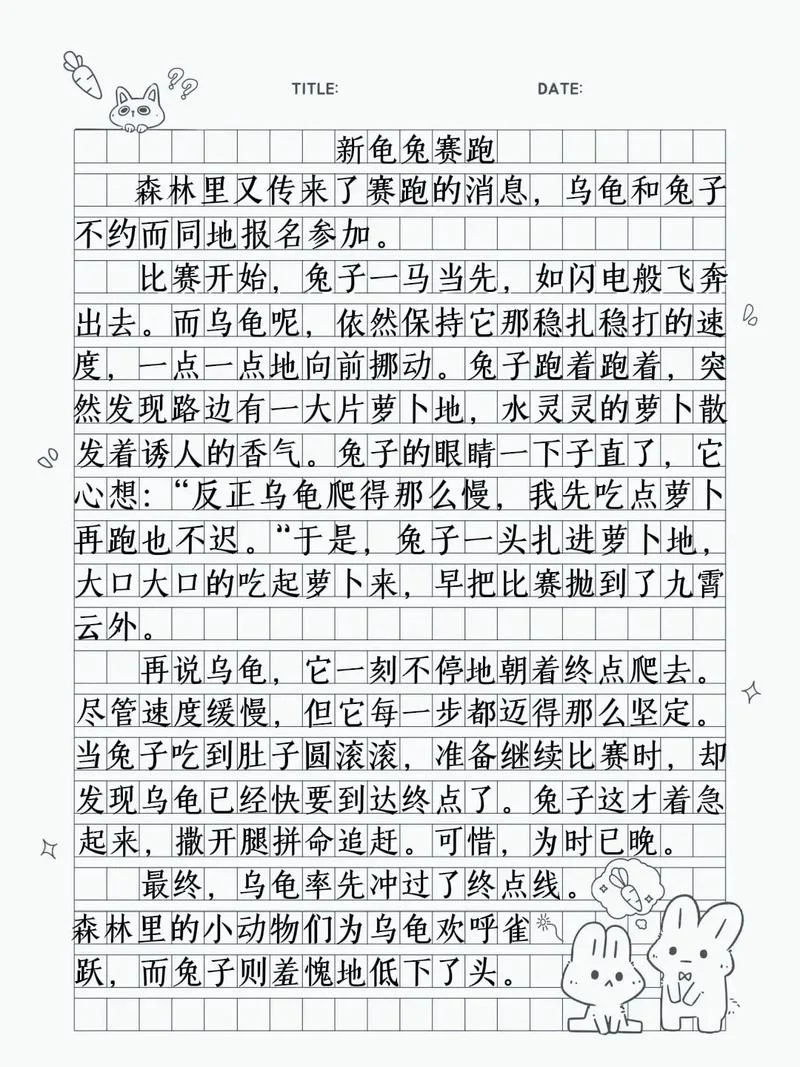 TITLE:
DATE:
新龟兔赛跑
森林里又传来了赛跑的消息，乌龟和兔子
不约而同地报名参加。
比赛开始，兔子一马当先，如闪电般飞奔
出去。而乌龟呢，依然保持它那稳扎稳打的速
度，一点一点地向前挪动。兔子跑着跑着，突
然发现路边有一大片萝卜地，水灵灵的萝卜散
发着诱人的香气。兔子的眼睛一下子直了，它
心想：“反正乌龟爬得那么慢，我先吃点萝卜
再跑也不迟。“于是，兔子一头扎进萝卜地，
大口大口的吃起萝卜来，早把比赛抛到了九霄
云外。
再说乌龟，它一刻不停地朝着终点爬去。
尽管速度缓慢，但它每一步都迈得那么坚定。
当兔子吃到肚子圆滚滚，准备继续比赛时，却
发现乌龟已经快要到达终点了。兔子这才着急
起来，撒开腿拼命追赶。可惜，为时已晚。
最终，乌龟率先冲过了终点线。
森林里的小动物们为乌龟欢呼雀
跃，而兔子则羞愧地低下了头。